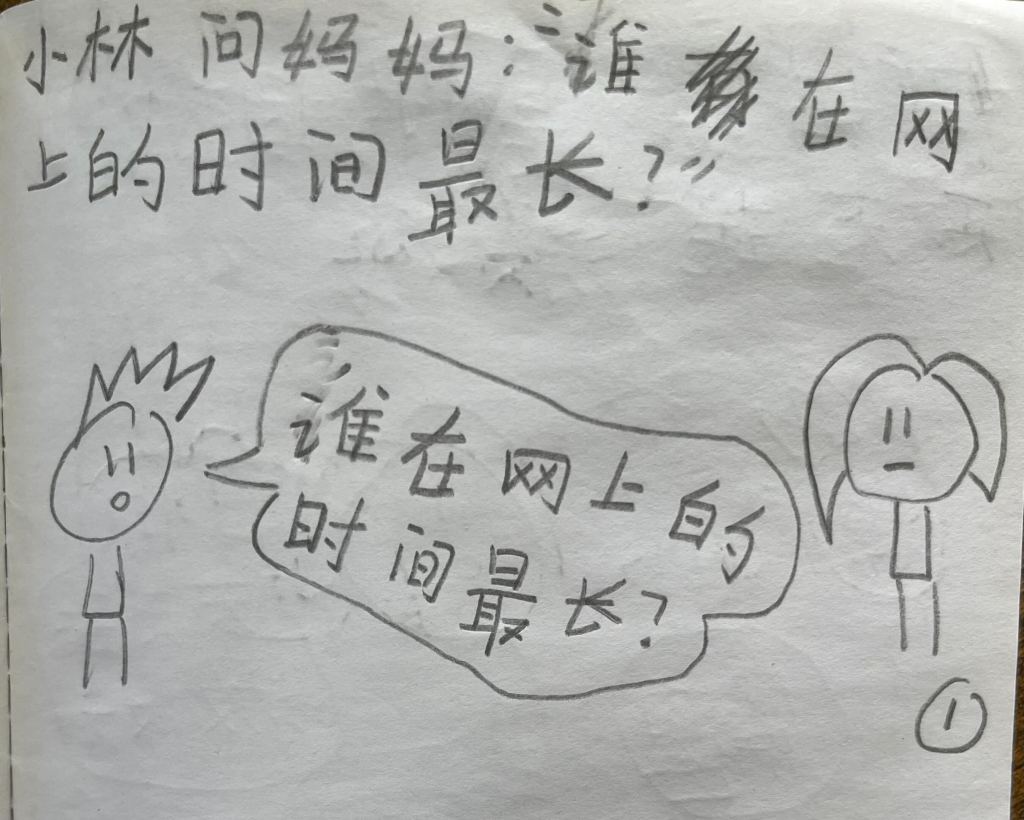 小林问妈妈:“谁在网
上的时间最长?”
谁在网上的
时间最长?
1